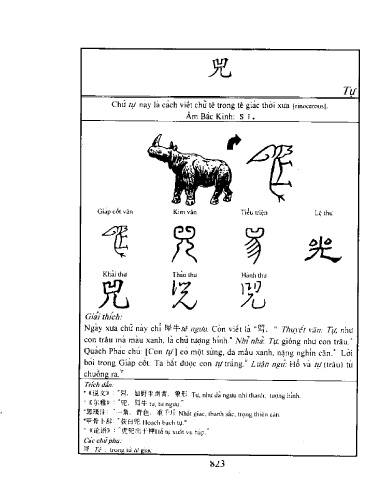 兕
Tự
Chữ tự nay là cách viết chữ tê trong tê giác thời xưa [rinocerous].
Âm Bắc Kinh: S Ì.
Giáp cốt văn Kim văn Tiểu triện Lệ thư
Khải thư Thảo thư Hành thư
兕
Giải thích:
Ngày xưa chữ này chỉ 犀牛 tê ngưu. Còn viết là " " Thuyết văn: Tự, như
con trâu mà màu xanh, là chữ tượng hình." Nhĩ nhã: Tự, giống như con trâu."
Quách Phác chú: [Con tự] có một sừng, da mầu xanh, nặng nghìn cân." Lời
bói trong Giáp cốt: Ta bắt được con tự trắng." Luận ngữ: Hổ và tự (trâu) từ
chuồng ra."
Trích dẫn:
《說文》: 如野牛而青, 象形 Tự, như dã ngưu nhi thanh, tượng hình.
《爾雅》: "兕, 似牛 tự, tự ngưu."
郭璞注: "一角, 青色, 重千斤 Nhất giác, thanh sắc, trọng thiên cân.
甲骨卜辭: "獲白兕 Hoạch bạch tự."
《論語》: "虎兕出于柙 Hổ tự xuất vu hạp."
Các chữ phụ:
Tê : trong tê giác
823